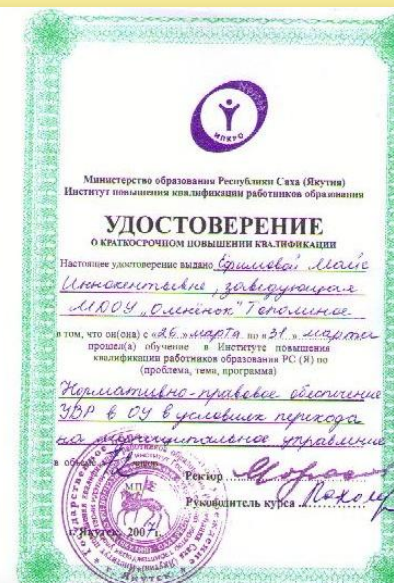 ИПКРО
Министерство образования Республики Саха (Якутия)
Институт повышения квалификации работников образования
УДОСТОВЕРЕНИЕ
О КРАТКОСРОЧНОМ ПОВЫШЕНИИ КВАЛИФИКАЦИИ
Настоящее удостоверение выдано Ефимовой Майе
Иннокентьевне, заведующая
МДОУ „Омчёнок" Тополиное
в том, что он(она) с «26» марта по «31» марта
прошел(а) обучение в Институте повышения
квалификации работников образования РС (Я) по
(проблема, тема, программа)
Нормативно-правовое обеспечение
УВР в ОУ в условиях перехода
на муниципальное управление
в объеме часов
Ректор
М.П.
Руководитель курса
г. Якутск 2007г.